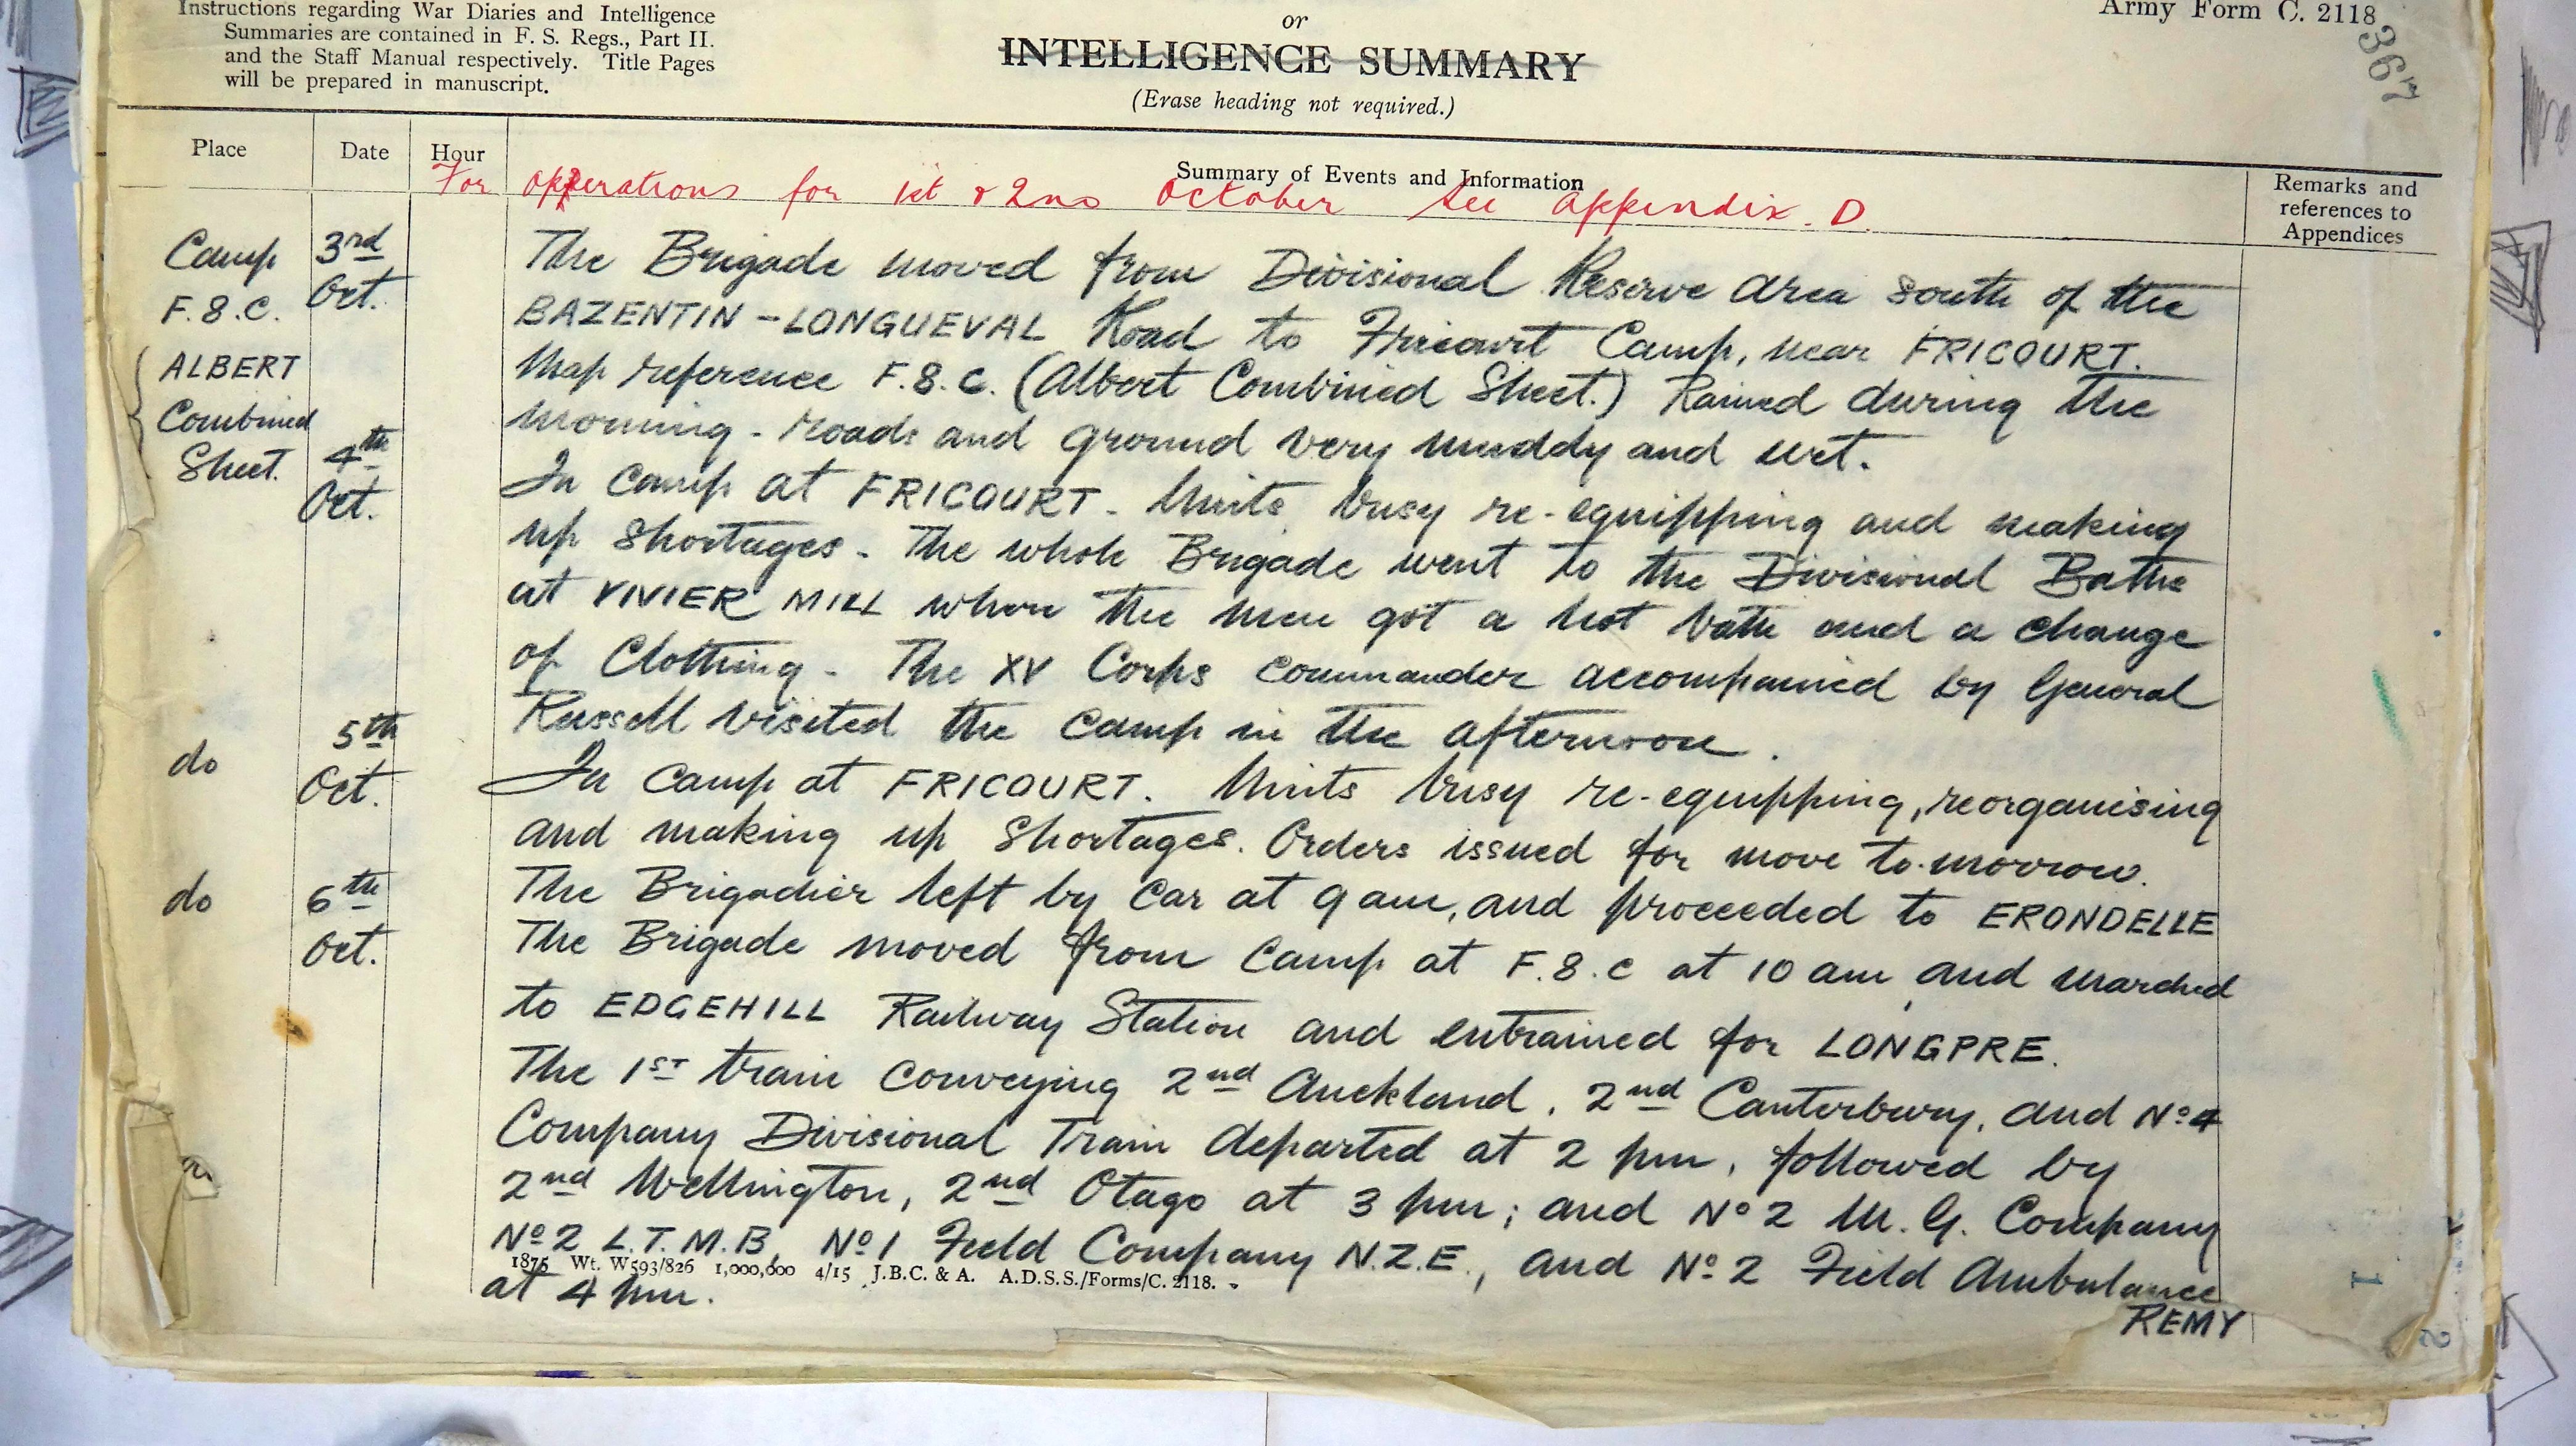 Instructions regarding War Diaries and Intelligence
Summaries are contained in F. S. Regs., Part II.
and the Staff Manual respectively. Title Pages
will be prepared in manuscript.
or
INTELLIGENCE SUMMARY
(Erase heading not required.)
Army Form C. 2118
367
Place
Date
Hour
Summary of Events and Information
Remarks and
references to
Appendices
For operations for 1st & 2nd October See appendix. D.
Camp
F.8.C.
ALBERT
Combined
Sheet.
3rd
Oct.
The Brigade moved from Divisional Reserve Area south of the
BAZENTIN - LONGUEVAL Road to Fricourt Camp, near FRICOURT.
Map reference F.8.C. (Albert Combined Sheet.) Rained during the
morning - roads and ground very muddy and wet.
4th
Oct.
In Camp at FRICOURT - Units busy re-equipping and making
up Shortages - The whole Brigade went to the Divisional Baths
at VIVIER MILL where the men got a hot bath and a change
of Clothing - The XV Corps Commander accompanied by General
Russell visited the Camp in the afternoon.
do
5th
Oct.
In Camp at FRICOURT. Units busy re-equipping, reorganising
and making up Shortages. Orders issued for move to-morrow.
do
6th
Oct.
The Brigadier left by Car at 9 am, and proceeded to ERONDELLE
The Brigade moved from Camp at F.8.C at 10 am and marched
to EDGEHILL Railway Station and entrained for LONGPRE.
The 1ST train conveying 2nd Auckland, 2nd Canterbury, and No 4
Company Divisional Train departed at 2 pm, followed by
2nd Wellington, 2nd Otago at 3 pm; and No 2 M.G. Company
No 2 L.T.M.B, No 1 Field Company N.Z.E., and No 2 Field Ambulance
1875 Wt. W593/826 1,000,000 4/15 J.B.C. & A. A.D.S.S./Forms/C. 2118.
at 4 pm.
REMY